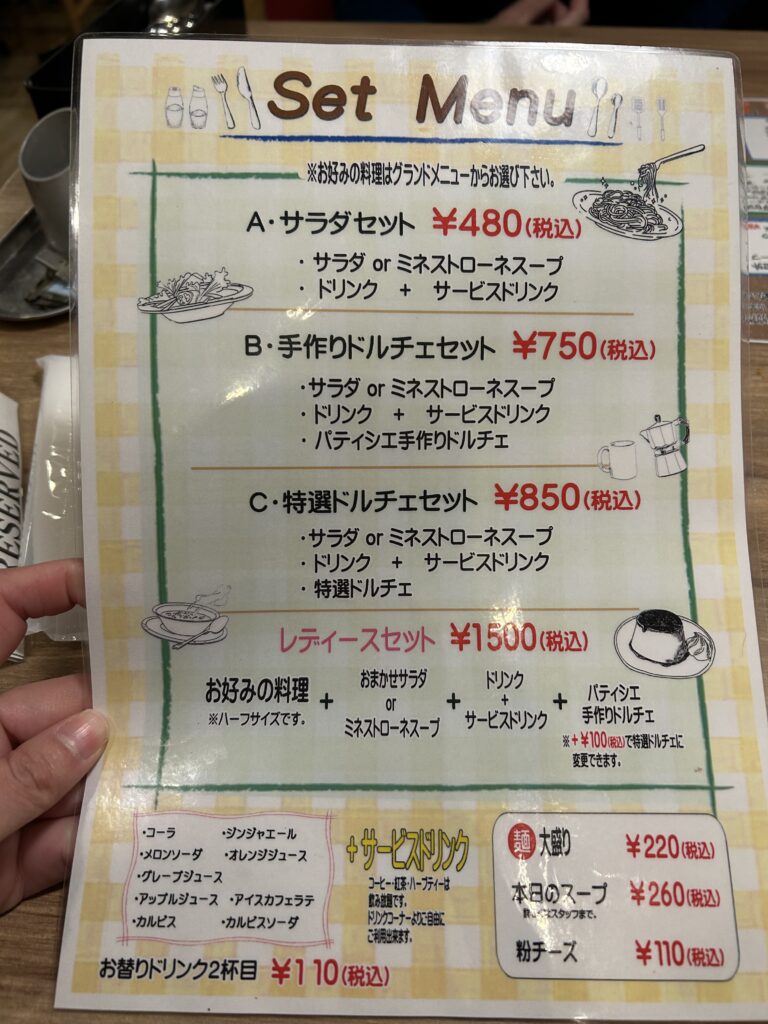 Set Menu
※お好みの料理はグランドメニューからお選び下さい。
A・サラダセット ¥480(税込)
・サラダ or ミネストローネスープ
・ドリンク + サービスドリンク
B・手作りドルチェセット ¥750(税込)
・サラダ or ミネストローネスープ
・ドリンク + サービスドリンク
・パティシエ手作りドルチェ
C・特選ドルチェセット ¥850(税込)
・サラダ or ミネストローネスープ
・ドリンク + サービスドリンク
・特選ドルチェ
レディースセット ¥1500(税込)
お好みの料理
※ハーフサイズです。
+
おまかせサラダ
or
ミネストローネスープ
+
ドリンク
+
サービスドリンク
+
パティシエ
手作りドルチェ
※+¥100(税込)で特選ドルチェに
変更できます。
・コーラ ・ジンジャエール
・メロンソーダ ・オレンジジュース
・グレープジュース
・アップルジュース ・アイスカフェラテ
・カルピス ・カルピスソーダ
+サービスドリンク
コーヒー・紅茶・ハーブティーは
飲み放題です。
ドリンクコーナーよりご自由に
ご利用出来ます。
お替りドリンク2杯目 ¥110(税込)
麺 大盛り ¥220(税込)
本日のスープ ¥260(税込)
スタッフまで。
粉チーズ ¥110(税込)
RESERVED